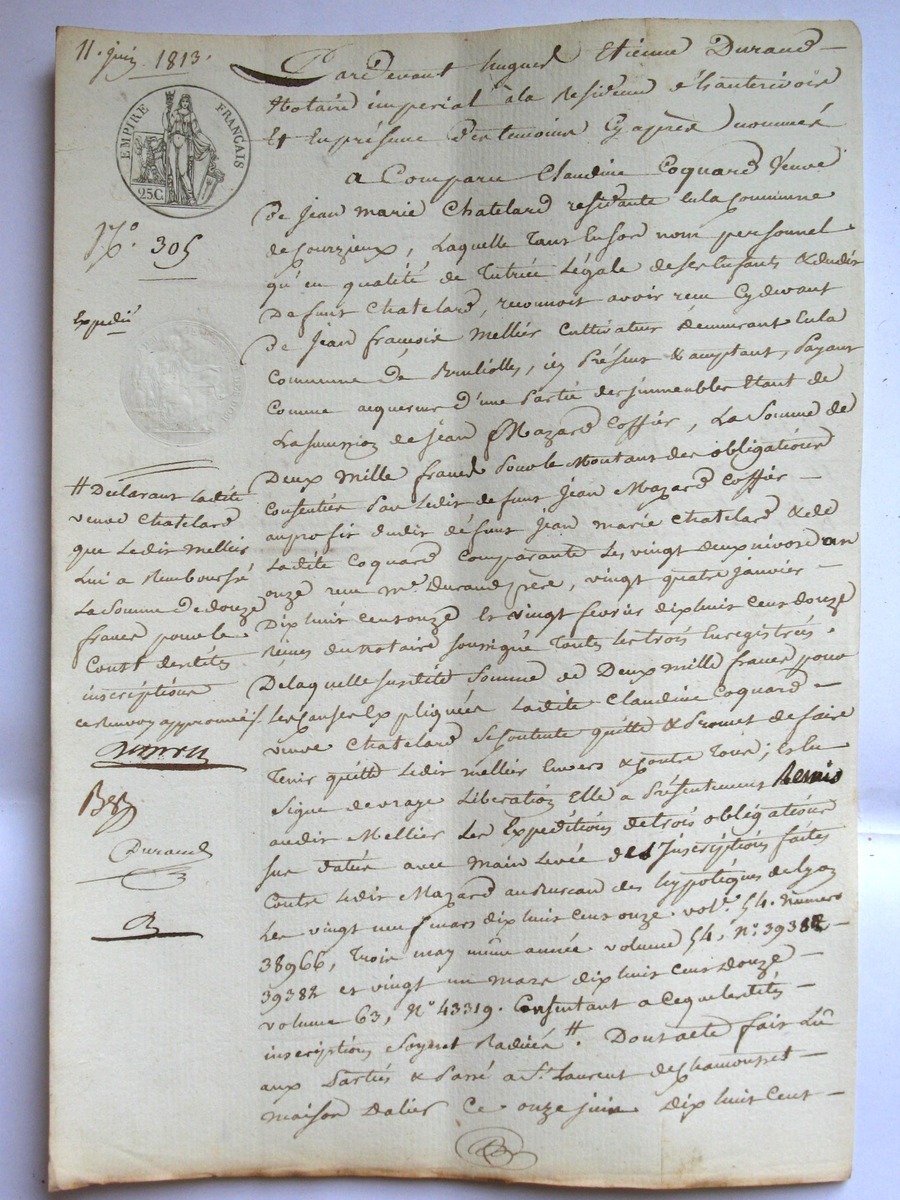 11. juin 1813.
EMPIRE FRANÇAIS
25C
N.º 305
Expedié
Pardevant hugues Etienne Durand
Notaire imperial à la Residence d'hauterivoire
Et En présence des temoins Cy après nommés
a Comparu Claudine Coquard Veuve
De Jean marie Chatelard residante En la Commune
de Courzieux, Laquelle Tant En son nom personnel
qu'en qualité de Tutrice Légale de ses Enfants & dudit
Defunt Chatelard, reconnoit avoir recu Cydevant
De Jean françois Mellier Cultivateur demeurant En la
Commune De Brullioles, icy Présent & acceptant, Payant
Comme acquereur d'une Partie des immeubles Etant de
La sucession de jean Mazard Coffier, La Somme de
Deux mille francs Pour le Montant des obligations
Consenties Par Ledit defunt Jean Mazard Coffier
au profit dudit défunt jean marie Chatelard & de
Ladite Coquard Comparante Les vingt deux nivose an
onze recu Me. Durand père, vingt quatre janvier
Dix huit cent onze Et vingt fevrier dix huit Cent douze
recues du notaire soussigné Toutes les trois Enregistrées.
De laquelle susdite Somme de Deux mille francs pour
Les Causes Expliquées Ladite Claudine Coquard
veuve Chatelard se Contente quitte & Promet de faire
Tenir quitte Ledit Mellier Envers & Contre Tous; Et En
Signe de vraye Libération Elle a Présentement Remis
audit Mellier Les Expeditions des trois obligations
sus datées avec main Levée des Inscriptions faites
Contre Ledit Mazard au Bureau des hypotèques de Lyon
Les vingt neuf mars dix huit cent onze vol.e 54. Numero
38966, Trois may même année volume 54, N.º 39382
39382 et vingt un mars dix huit cent Douze
volume 63, N.º 43319. Consentant a Ceque Lesdites
inscriptions Soyent Radiées #. Dont acte fait Lû
aux Parties & Passé a St. Laurent de Chamousset
maison Dalier Ce onze juin dix huit Cent
# Declarant Ladite
veuve Chatelard
que Ledit Mellier
Lui a Remboursé
La Somme De douze
francs pour le
Cout desdites
inscriptions
ce Renvoy approuvé
Durand